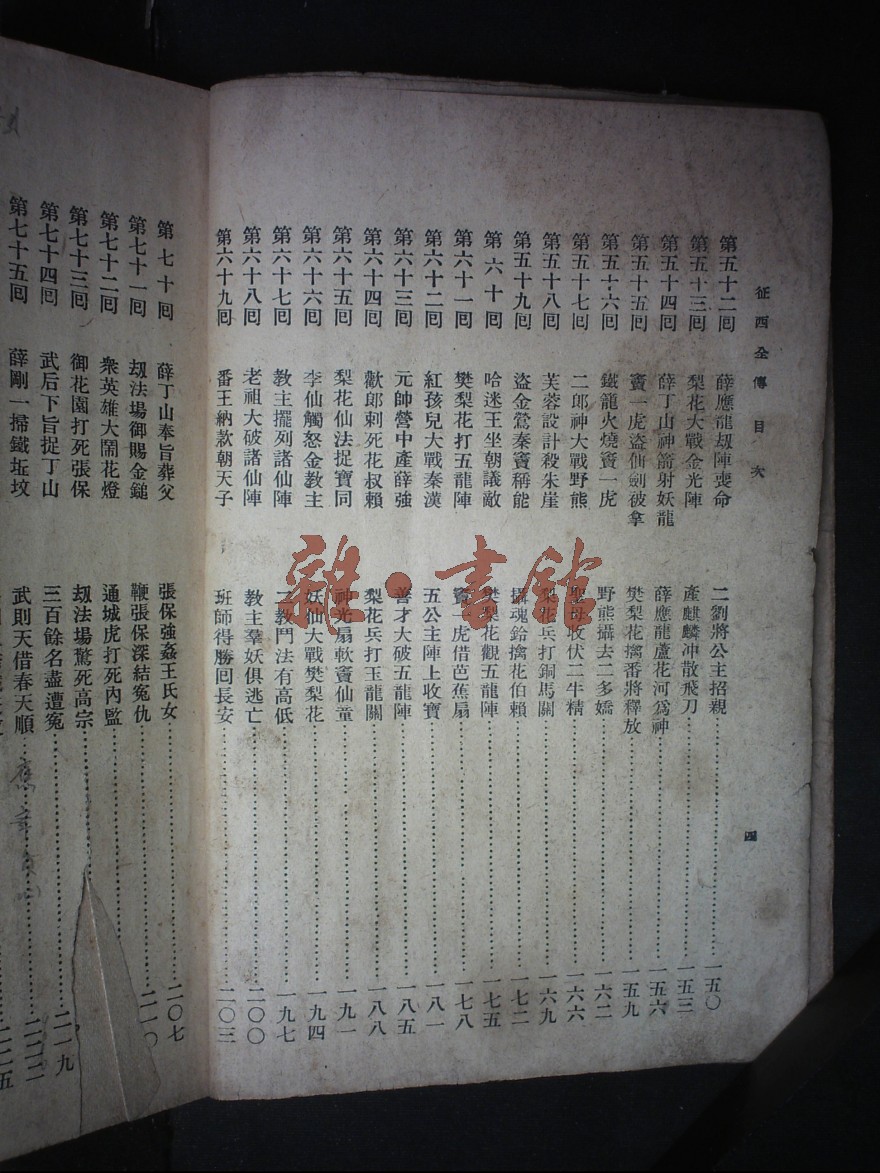 征西全傳目次
四
第五十二囘 薛應龍刧陣喪命 二劉將公主招親 一五〇
第五十三囘 梨花大戰金光陣 產麒麟冲散飛刀 一五三
第五十四囘 薛丁山神箭射妖龍 薛應龍蘆花河爲神 一五六
第五十五囘 竇一虎盜仙劍被拿 樊梨花擒番將釋放 一五九
第五十六囘 鐵龍火燒竇一虎 野熊攝去二多嬌 一六二
第五十七囘 二郎神大戰野熊 聖母收伏二牛精 一六六
第五十八囘 芙蓉設計殺朱崖 梨花兵打銅馬關 一六九
第五十九囘 盜金鶯秦竇稱能 攝魂鈴擒花伯賴 一七二
第六十囘 哈迷王坐朝議敵 樊梨花觀五龍陣 一七五
第六十一囘 樊梨花打五龍陣 竇一虎借芭蕉扇 一七八
第六十二囘 紅孩兒大戰秦漢 五公主陣上收寶 一八一
第六十三囘 元帥營中產薛強 善才大破五龍陣 一八五
第六十四囘 歡郎刺死花叔賴 梨花兵打玉龍關 一八八
第六十五囘 梨花仙法捉寶同 神光扇軟竇仙童 一九一
第六十六囘 李仙觸怒金教主 妖仙大戰樊梨花 一九四
第六十七囘 教主擺列諸仙陣 二教鬥法有高低 一九七
第六十八囘 老祖大破諸仙陣 教主羣妖俱逃亡 二〇〇
第六十九囘 番王納款朝天子 班師得勝囘長安 二〇三
第七十囘 薛丁山奉旨葬父 張保強姦王氏女 二〇七
第七十一囘 刧法場御賜金鎚 鞭張保深結冤仇 二一〇
第七十二囘 衆英雄大鬧花燈 通城虎打死內監
第七十三囘 御花園打死張保 刧法場驚死高宗 二一九
第七十四囘 武后下旨捉丁山 三百餘名盡遭冤 二二二
第七十五囘 薛剛一掃鐵坵坟 武則天借春天順 二二五
雜·書館